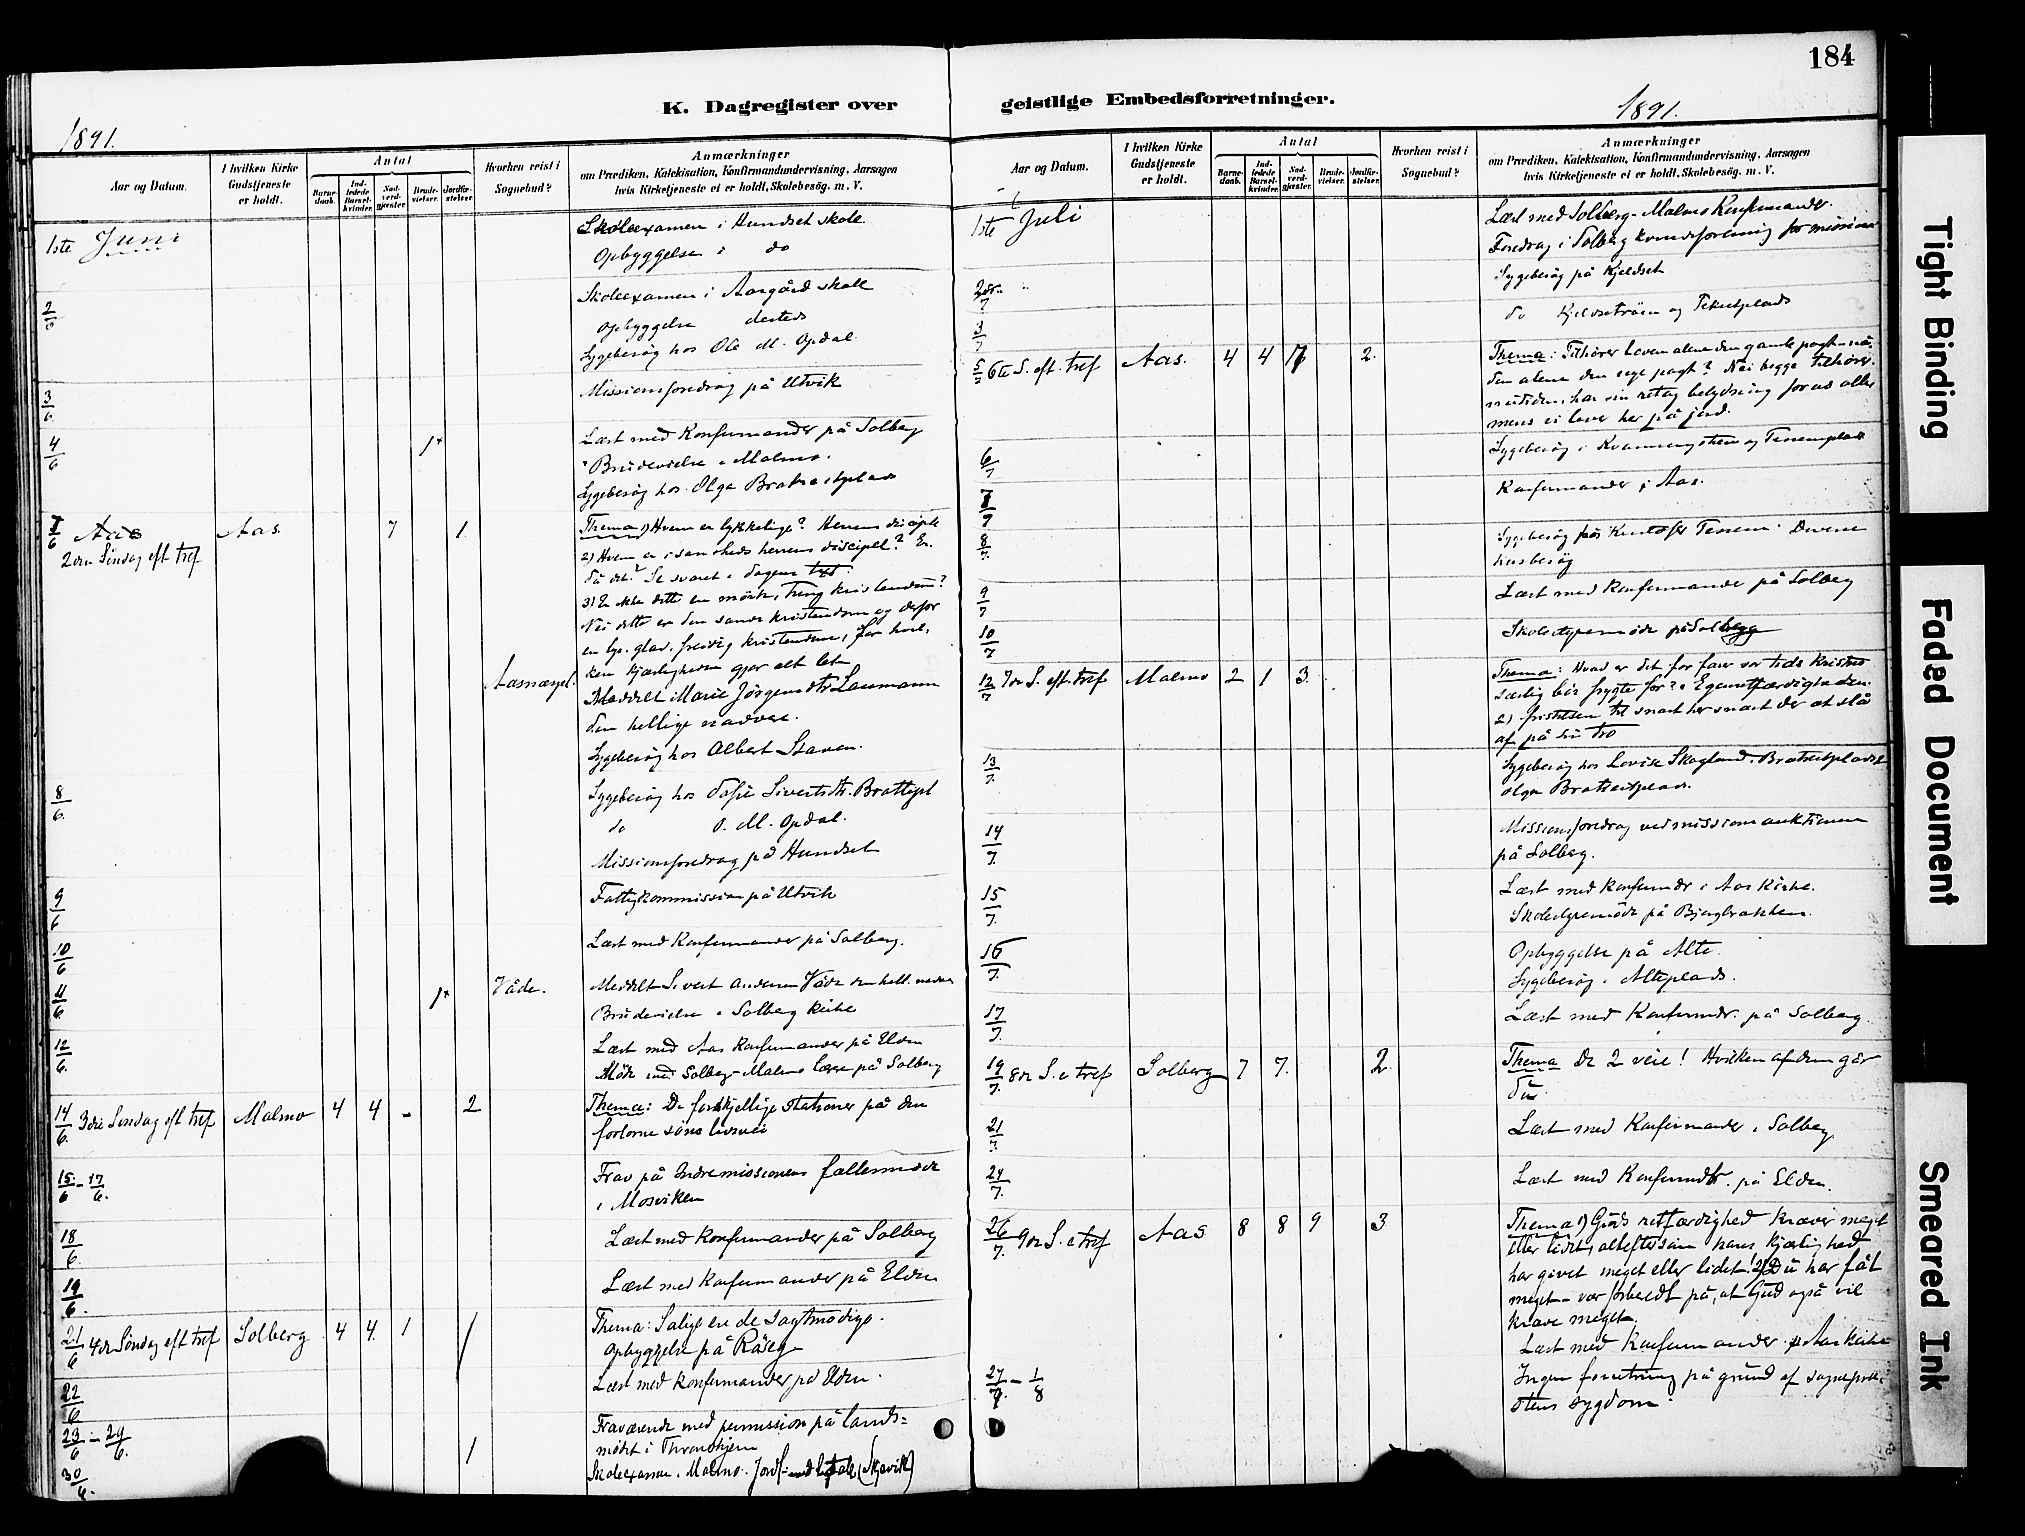 184
K. Dagregister over
geistlige Embedsforretninger.
1891.
1891.
Aar og Datum.
I hvilken Kirke Gudstjeneste er holdt.
Antal
Barne-daab.
Ind-ledede Barsel-kvinder.
Nad-verd-gjester.
Brude-vielser.
Jordfæ-stelser.
Hvorhen reist i Sognebud?
Anmærkninger
om Prædiken, Katekisation, Konfirmandundervisning, Aarsagen
hvis Kirketjeneste ei er holdt, Skolebesøg. m. V.
1ste Juni
Skoleexamen i Hundset skole
Opbyggelse i do
2/6
Skoleexamen i Aargård skole
Opbyggelse desteds
Sygebesøg hos Ole M. Opdal
3/6
Missionsforedrag på Utvik
4/6 1+
Læst med Konfirmander på Solberg
Brudevielse i Malmo.
Sygebesøg hos Olga Bratreitplads
7/6 Aas
Aas. 7 1.
2den Søndag eft tref
Thema 1) Hvem er lykkelige? Herrens disciple
2) Hvem er i sandheds herrens discipel? Er
du det? Se svaret i dagens txt.
3) Er ikke dette en mörk, tung kristendom?
Nei dette er den sande kristendom og derfor
en lys, glad, freidig kristendom, for
kjærligheden gjør alt let
Aasnæsset.
Meddelt Marie Jørgensdtr Laumann
den hellige nadvere.
Sygebesøg hos Albert Staven.
8/6
Sygebesøg hos Sivertsdtr. Brattepl
do O. M. Opdal.
Missionsforedrag på Hundset
9/6
Fattigkommission på Utvik
10/6
Læst med Konfirmander på Solberg.
11/6 1+ Våde.
Meddelt Sivert Andersen Våde den hell. nadver
Brudevielse i Solberg kirke
12/6
Læst med Aas Konfirmander på Elden
Møde med Solberg-Malmo lærer på Solberg
14/6 3die Søndag eft tref Malmo 4 4 - 2
Thema: De forskjellige stationer på den
forlorne søns livsvei
15/6 - 17/6
Frav på Indremissionens fællesmøde
i Mosviken
18/6
Læst med Konfirmander på Solberg
19/6
Læst med Konfirmander på Elden
21/6 4de Søndag eft tref Solberg 4 4. 1 1
Thema: Salige ere de sagtmodige.
Opbyggelse på Råseg
22/6
Læst med Konfirmander på Elden.
23/6 - 29/6
Fraværende med permission på lands=
mødet i Throndhjem
30/6 1
Skoleexamen i Malmo. Jordf. med ligtale (Skjevik)
Aar og Datum.
I hvilken Kirke Gudstjeneste er holdt.
Antal
Barne-daab.
Ind-ledede Barsel-kvinder.
Nad-verd-gjester.
Brude-vielser.
Jordfæ-stelser.
Hvorhen reist i Sognebud?
Anmærkninger
om Prædiken, Katekisation, Konfirmandundervisning, Aarsagen
hvis Kirketjeneste ei er holdt, Skolebesøg. m. V.
1ste Juli
Læst med Solberg-Malmo Konfirmander.
Foredrag i Solberg kvindeforening for missionen
2den/7
Sygebesøg på Kjeldset
3/7
do Kjeldsetrøen og
5/7 6te S. eft. tref Aas. 4 4 2.
Thema: Tilhører Loven alene den gamle pagt - nå-
den alene den nye pagt? Nei begge tilhører
nutiden, har sin ret og betydning for os alle
mens vi lever her på jord.
6/7
Sygebesøg i
7/7
Konfirmander i Aas.
8/7
Sygebesøg hos Tessem. Diverse
husbesøg
9/7
Læst med Konfirmander på Solberg
10/7
Skolestyremøde på Solberg
12/7 7de S. eft. tref Malmo 2 1 3.
Thema: Hvad er det for farer vor tids kristne
særlig bør frygte for? 1 Egenretfærdigheden.
2) fristelsen til snart her snart der at slå
af på sin tro
13/7
Sygebesøg hos Lovise Skogland. Bratreitplads
Olga Bratreitplads.
14/7
Missionsforedrag ved missionsauktionen
på Solberg.
15/7
Læst med konfirmdr i Aas Kirke.
Skolestyremøde på Bjergbakken.
16/7
Opbyggelse på Alte.
Sygebesøg i Alteplads.
17/7
Læst med Konfirmdr. på Solberg.
19/7 8de S. e tref Solberg 7 7. 2.
Thema De 2 veie! Hvilken af dem går
du.
21/7
Læst med Konfirmander i Solberg
24/7
Læst med Konfirmdtr. på Elden.
26/7 9de S. e tref Aas 8 8 9 3
Thema 1) Guds retfærdighed kræver meget
eller lidet, alt eftersom hans kjærlighed
har givet meget eller lidet! 2) Du har fåt
meget - vær forberedt på, at Gud også vil
kræve meget.
Læst med Konfirmander i Aas kirke
27/7 - 1/8
Ingen forretning på grund af sognepræ-
stens sygdom.
Tight Binding
Faded Document
Smeared Ink